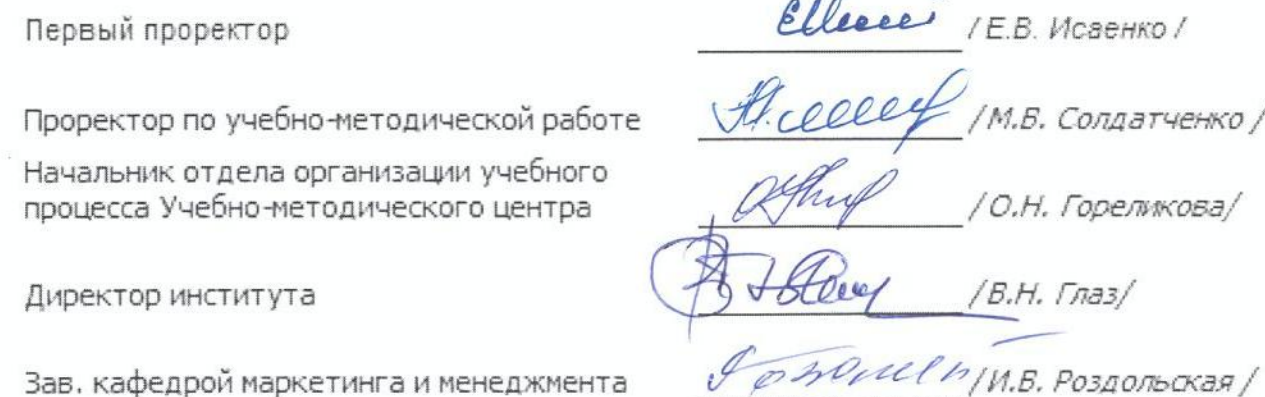 Первый проректор / Е.В. Исаенко /
Проректор по учебно-методической работе / М.В. Солдатченко /
Начальник отдела организации учебного
процесса Учебно-методического центра / О.Н. Гореликова/
Директор института /В.Н. Глаз/
Зав. кафедрой маркетинга и менеджмента /И.В. Роздольская /